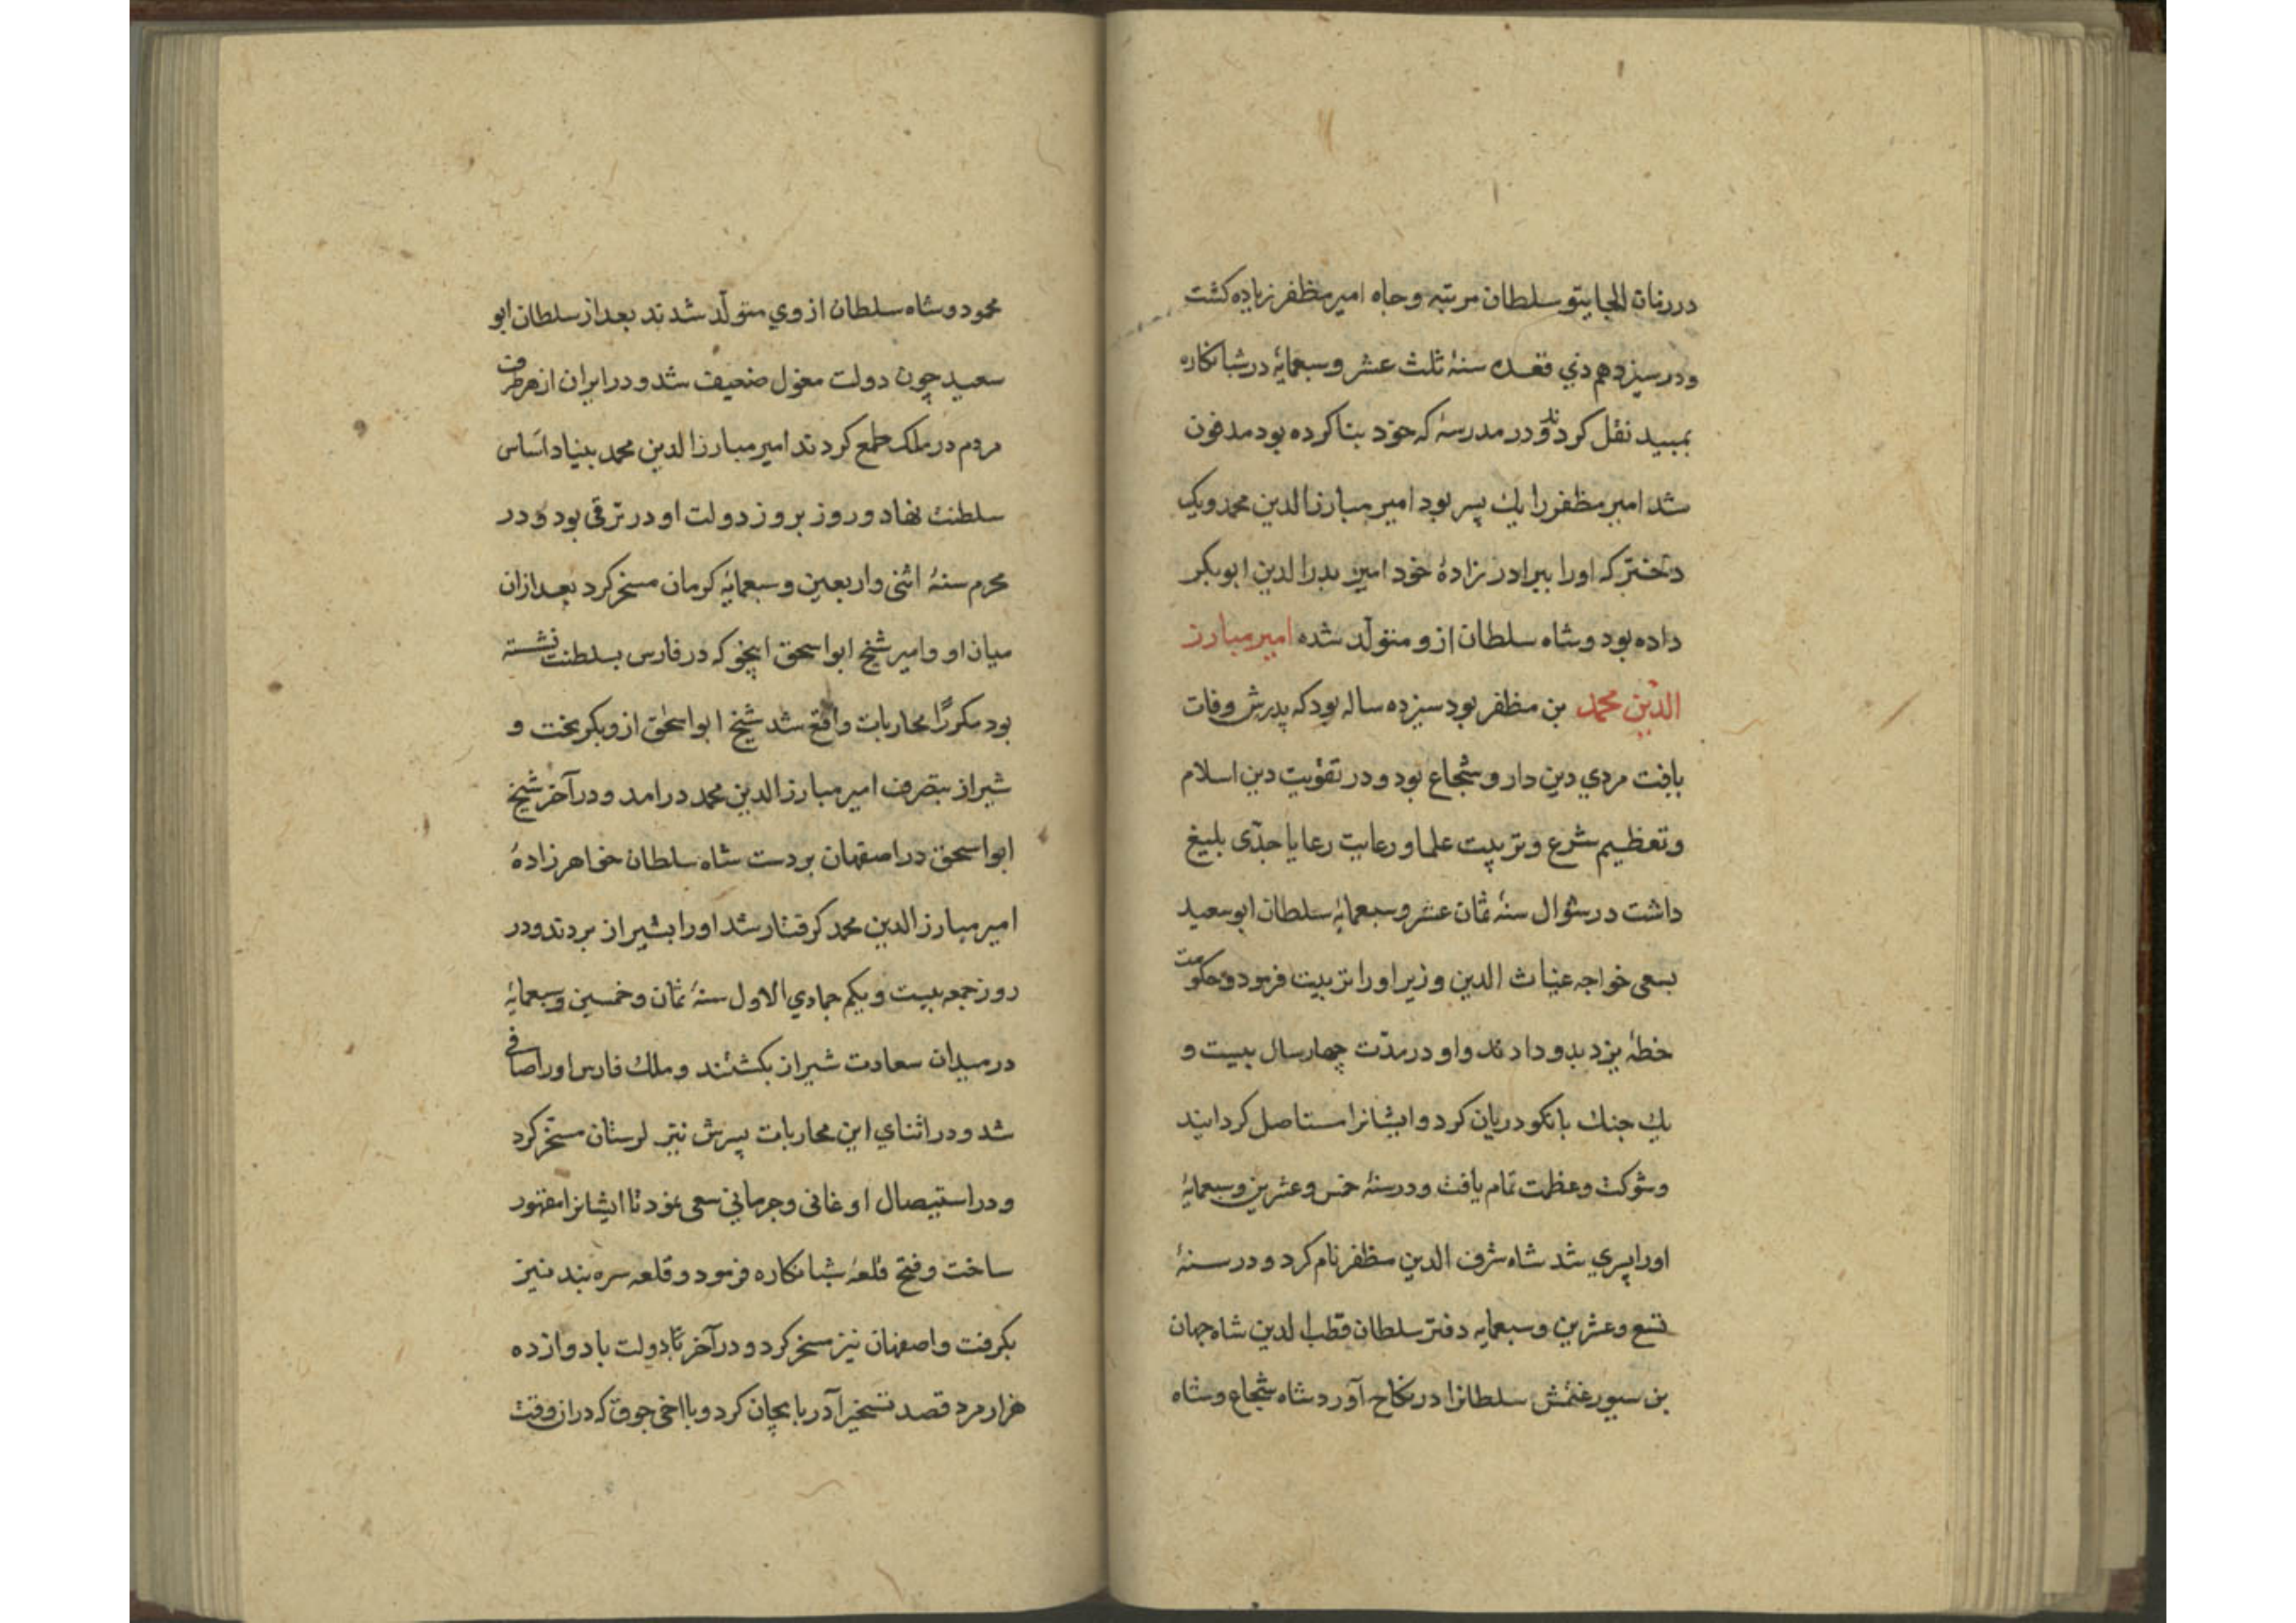 در زمان الجایتو سلطان مرتبه و جاه امیر مظفر زیاده کشت
و در سیزدهم ذی قعده سنهٔ ثلث عشر و سبعمایهٔ در شبانکاره
بمیبد نقل کردند و در مدرسهٔ که خود بنا کرده بود مدفون
شد امیر مظفر را یك پسر بود امیر مبارزالدین محمد و یک
دختر که اورا ببرادر زادهٔ خود امیر بدرالدین ابوبکر
داده بود و شاه سلطان ازو متولّد شده امیر مبارز
الدّین محمد بن مظفر بود سیزده ساله بود که پدرش وفات
یافت مردي دین دار و شجاع بود و در تقویت دین اسلام
و تعظیم شرع و تربیت علما و رعایت رعایا جدّی بلیغ
داشت در شوال سنهٔ ثمان عشر و سبعمایهٔ سلطان ابو سعید
بسعی خواجه غیاث الدین وزیر اورا تربیت فرمود و حکومت
خطهٔ یزد بدو دادند و او در مدّت چهار سال بیست و
یك جنك با نکودریان کرد و ایشانرا مستاصل کردانید
و شوکت و عظمت تمام یافت و در سنهٔ خمس و عشرین و سبعمایهٔ
اورا پسري شد شاه شرف الدین مظفر نام کرد و در سنهٔ
تسع و عشرین و سبعمایه دفتر سلطان قطب الدین شاه جهان
بن سیورغتمش سلطانرا در نکاح آورد شاه شجاع و شاه
محمود و شاه سلطان از وي متولّد شدند بعد از سلطان ابو
سعید چون دولت مغول ضعیف شد و در ایران از هر طرف
مردم در ملک طمع کردند امیر مبارزالدین محمد بنیاد اساس
سلطنت نهاد و روز بروز دولت او در ترقی بود و در
محرم سنهٔ اثنی و اربعین و سبعمایهٔ کرمان مسخر کرد بعد ازان
میان او و امیر شیخ ابواسحق اینجو که در فارس بسلطنت نشسته
بود مکررًا محاربات واقع شد شیخ ابواسحق ازو بکریخت و
شیراز بتصرف امیر مبارزالدین محمد درامد و در آخر شیخ
ابواسحق در اصفهان بر دست شاه سلطان خواهرزادهٔ
امیر مبارزالدین محمد کرفتار شد اورا بشیراز بردند و در
روز جمعه بیست و یکم جمادي الاول سنهٔ ثمان و خمسین و سبعمایهٔ
در میدان سعادت شیراز بکشتند و ملك فارس اورا صافی
شد و در اثنای این محاربات پسرش نیز لرستان مسخر کرد
و در استیصال اوغانی و جرمانی سعی نمود تا ایشانرا مقهور
ساخت و فتح قلعهٔ شبانکاره فرمود و قلعه سره بند نیز
بکرفت و اصفهان نیز مسخر کرد و در آخر دولت با دوازده
هزار مرد قصد تسخیر آذربایجان کرد و با اخی جوق که دران وقت